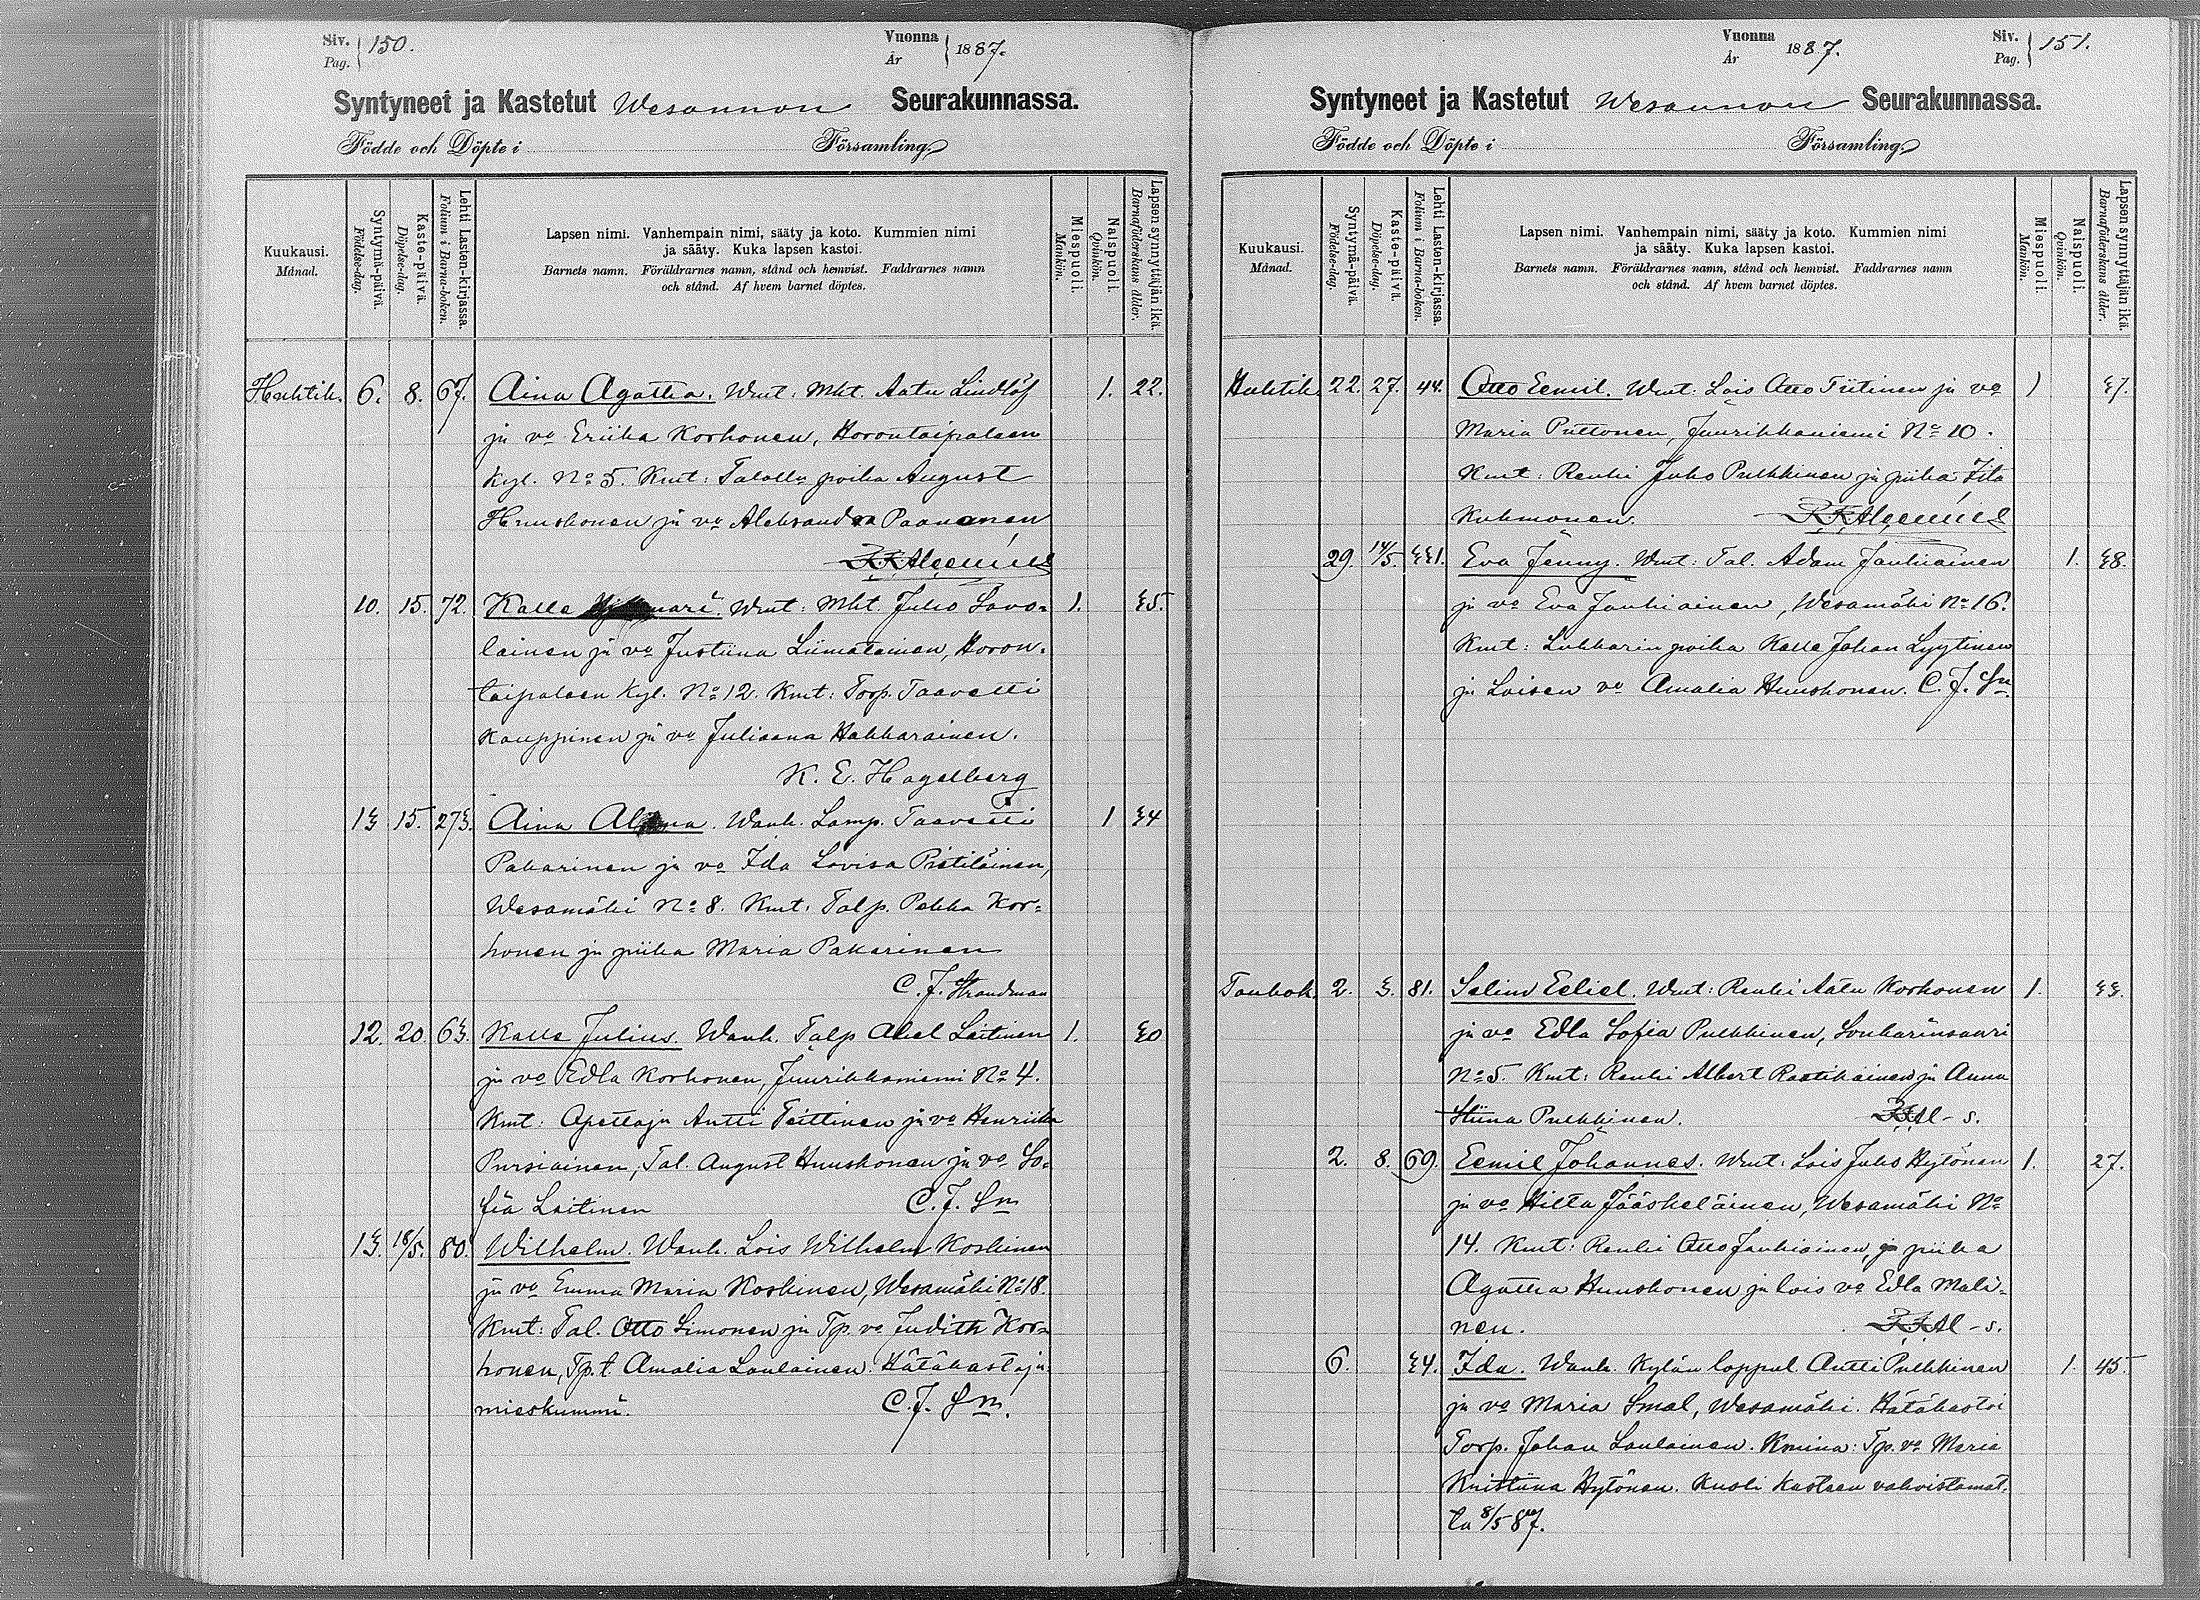 Siv. Pag. 150.
Vuonna År 1887.
Syntyneet ja Kastetut Wesannon Seurakunnassa.
Födde och Döpte i Församling.
Kuukausi. Månad.
Syntymä-päivä. Födelse-dag.
Kaste-päivä. Döpelse-dag.
Lehti Lasten-kirjassa. Folium i Barna-boken.
Lapsen nimi. Vanhempain nimi, sääty ja koto. Kummien nimi
ja sääty. Kuka lapsen kastoi.
Barnets namn. Föräldrarnes namn, stånd och hemvist. Faddrarnes namn
och stånd. Af hvem barnet döptes.
Miespuoli. Mankön.
Naispuoli. Qvinkön.
Lapsen synnyttäjän ikä. Barnaföderskans ålder.
Huhtik. 6. 8. 67. Aina Agatta. Wmt: Mkt. Aatu Lindlöf 1. 22.
ja vo Eriika Korhonen, Horontaipaleen
Kyl. No 5. Kmt: Talolln poika August
Huuskonen ja vo Aleksandra Paananen
10. 15. 72. Kalle Wmt: Mkt. Juho Savo= 1. 35.
lainen ja vo Justiina Liimatainen, Horon=
taipaleen Kyl. No 12. Kmt: Torp. Taavetti
Kauppinen ja vo Juliaana Hakkarainen.
K. E. Hagelberg
13 15. 273. Aina Wanh. Lamp. Taavetti 1 34
Pakarinen ja vo Ida Lovisa Pietiläinen,
Wesamäki No 8. Kmt: Talp. Pekka Kor=
honen ja piika Maria Pakarinen
C. J. Strandman
12. 20. 63. Kalle Julius. Wanh. Talp Abel Laitinen 1. 30
ja vo Edla Korhonen, Juurikkaniemi No 4.
Kmt: Opettaja Antti Teittinen ja vo Henriika
Pursiainen, Tal. August Huuskonen ja vo So=
fia Laitinen C. J. Sm
13. 18/5. 80. Wilhelm. Wanh. Lois Wilhelm Koskinen
ja vo Emma Maria Koskinen, Wesamäki No 18.
Kmt: Tal. Otto Simonen ja Tp. vo Judith Kor=
honen, Tp. t. Amalia Laulainen. Hätäkastaja
mieskummi. C. J. Sm.
Vuonna År 1887.
Siv. Pag. 151.
Syntyneet ja Kastetut Wesannon Seurakunnassa.
Födde och Döpte i Församling.
Kuukausi. Månad.
Syntymä-päivä. Födelse-dag.
Kaste-päivä. Döpelse-dag.
Lehti Lasten-kirjassa. Folium i Barna-boken.
Lapsen nimi. Vanhempain nimi, sääty ja koto. Kummien nimi
ja sääty. Kuka lapsen kastoi.
Barnets namn. Föräldrarnes namn, stånd och hemvist. Faddrarnes namn
och stånd. Af hvem barnet döptes.
Miespuoli. Mankön.
Naispuoli. Qvinkön.
Lapsen synnyttäjän ikä. Barnaföderskans ålder.
Huhtik. 22. 27. 44. Otto Eemil. Wmt. Lois Otto Tiitinen ja vo 1 37.
Maria Puttonen, Juurikkaniemi No 10.
Kmt: Renki Juho Pulkkinen ja piika Iita
Kuhmonen.
29. 14/5. 331. Eva Jenny. Wmt: Tal. Adam Jauhiainen 1. 38.
ja vo Eva Jauhiainen, Wesamäki No 16.
Kmt: Lukkarin poika Kalle Johan Lyytinen
ja Loisen vo Amalia Huuskonen. C. J. Sm.
Toukok. 2. 3. 81. Selim Eeliel. Wmt: Renki Aatu Korhonen 1. 33.
ja vo Edla Sofia Pulkkinen, Sonkarinsaari
No 5. Kmt: Renki Albert Raatikainen ja Anna
Stiina Pulkkinen.
2. 8. 69. Eemil Johannes. Wmt: Lois Juho Hytönen 1. 27.
ja vo Hilta Jääskeläinen, Wesamäki No
14. Kmt: Renki Otto Jauhiainen, ja piika
Agatta Huuskonen ja lois vo Edla Mali=
nen.
6. 34. Ida. Wanh. Kylän loppul. Antti Pulkkinen 1. 45
ja vo Maria Smal, Wesamäki. Hätäkastoi
Torp. Johan Laulainen. Kmina: Tp. vo Maria
Kristiina Hytönen. Kuoli kasteen vahvistamat=
ta 8/5 87.